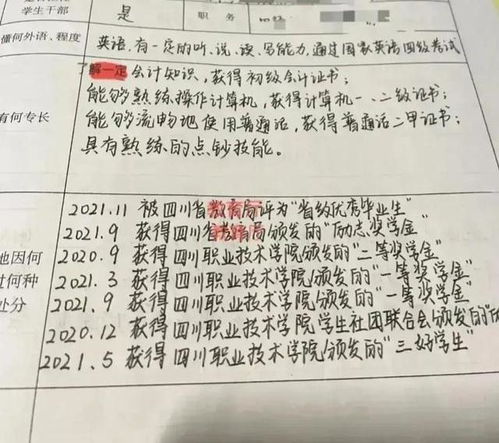 学生干部 是 职务
懂何外语、程度 英语,有一定的听、说、读、写能力,通过国家英语四级考试
了解一定会计知识,获得初级会计证书;
能够熟练操作计算机,获得计算机一、二级证书;
有何专长 能够流畅地使用普通话,获得普通话二甲证书;
具有熟练的点钞技能。
2021.11 被四川省教育局评为“省级优秀毕业生”
2021.9 获得四川省教育局颁发的“励志奖学金”
因何 2020.9 获得四川职业技术学院颁发的“二等奖学金”
何种 2021.3 获得四川职业技术学院颁发的“一等奖学金”
处分 2021.9 获得四川职业技术学院颁发的“一等奖学金”
2020.12 获得四川职业技术学院学生社团联合会颁发的“
2021.5 获得四川职业技术学院颁发的“三好学生”